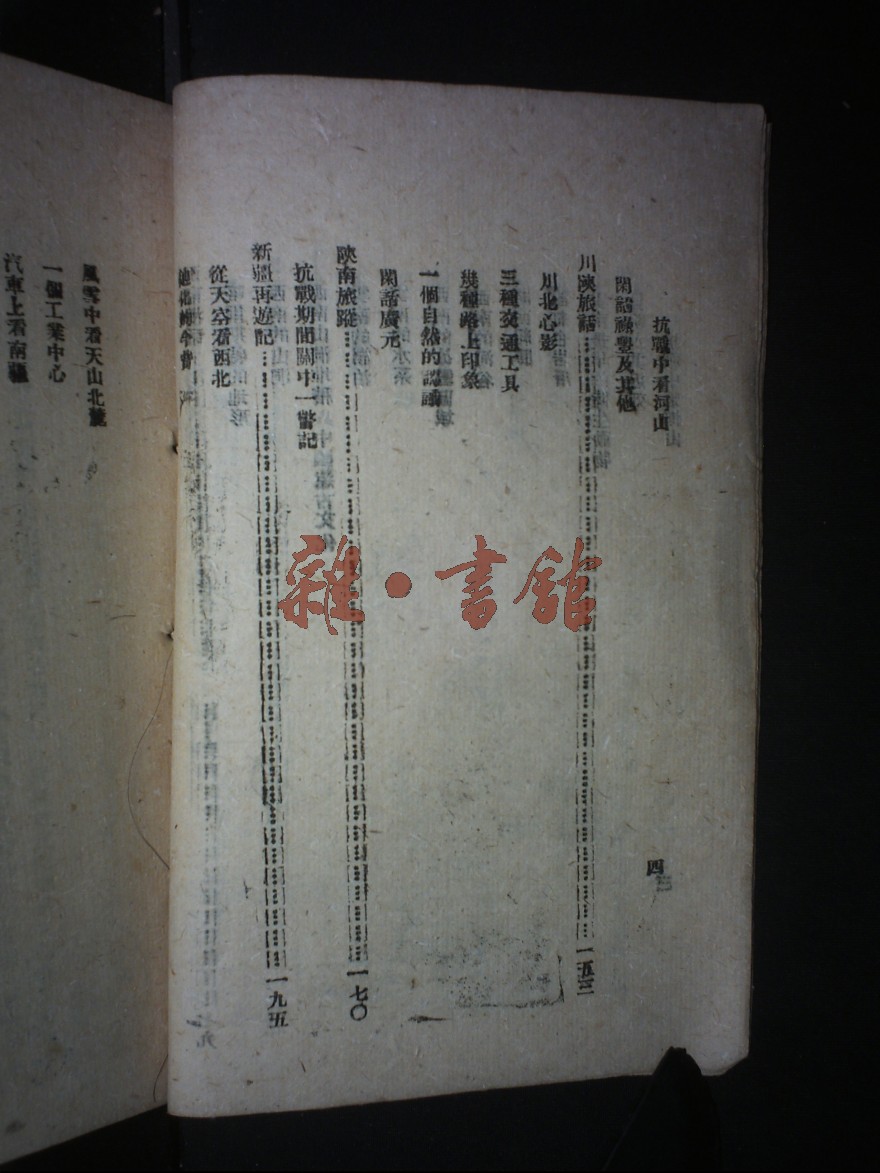 抗戰中看河山
四
閑話祿豐及其他
川陝旅話 一五三
川北心影
三種交通工具
幾種路上印象
一個自然的認識
閑話廣元
陝南旅蹤 一七〇
抗戰期間關中一瞥記
新疆再遊記 一九五
從天空看西北
迪化的今昔
風雪中看天山北麓
一個工業中心
汽車上看南疆
雜·書館